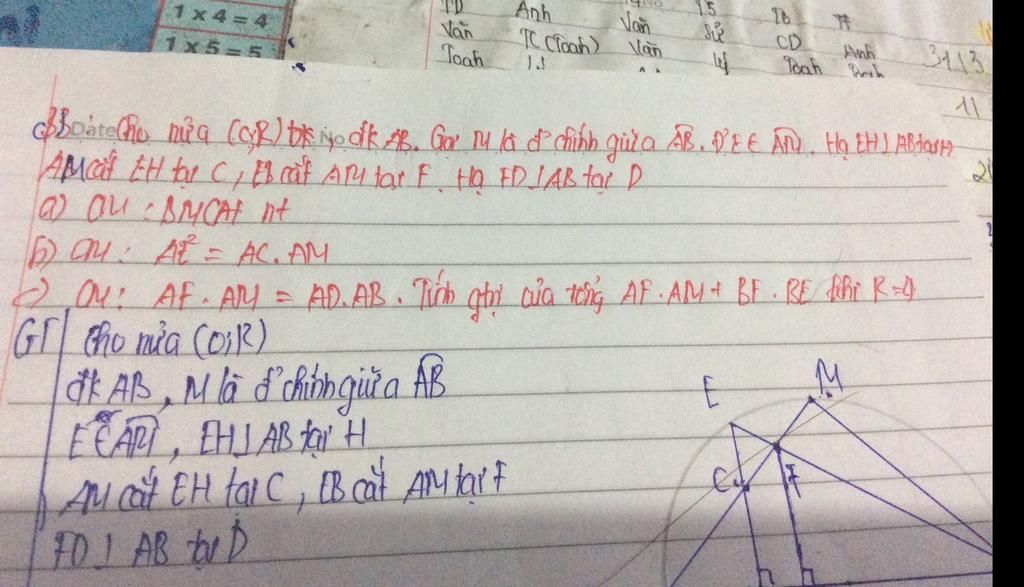 1 x 4 = 4
1 x 5 = 5
TD Anh Văn T5 T6 T7
Văn TC (Toán) Văn Sử CD Anh 3113
Toán Toán
11
Date No
Cho nửa (O;R) đk AB. Gọi M là đ' chính giữa AB. Đ' E ∈ AM. Hạ EH ⊥ AB tại H
AM cắt EH tại C, EB cắt AM tại F. Hạ FD ⊥ AB tại D
a) CM: BMCH nt
b) CM: AE² = AC.AM
c) CM: AF.AM = AD.AB. Tính gtrị của tổng AF.AM + BF.BE khi R=4
GT Cho nửa (O;R)
đk AB, M là đ' chính giữa AB
E ∈ AM, EH ⊥ AB tại H
AM cắt EH tại C, EB cắt AM tại F
FD ⊥ AB tại D
E M
C F